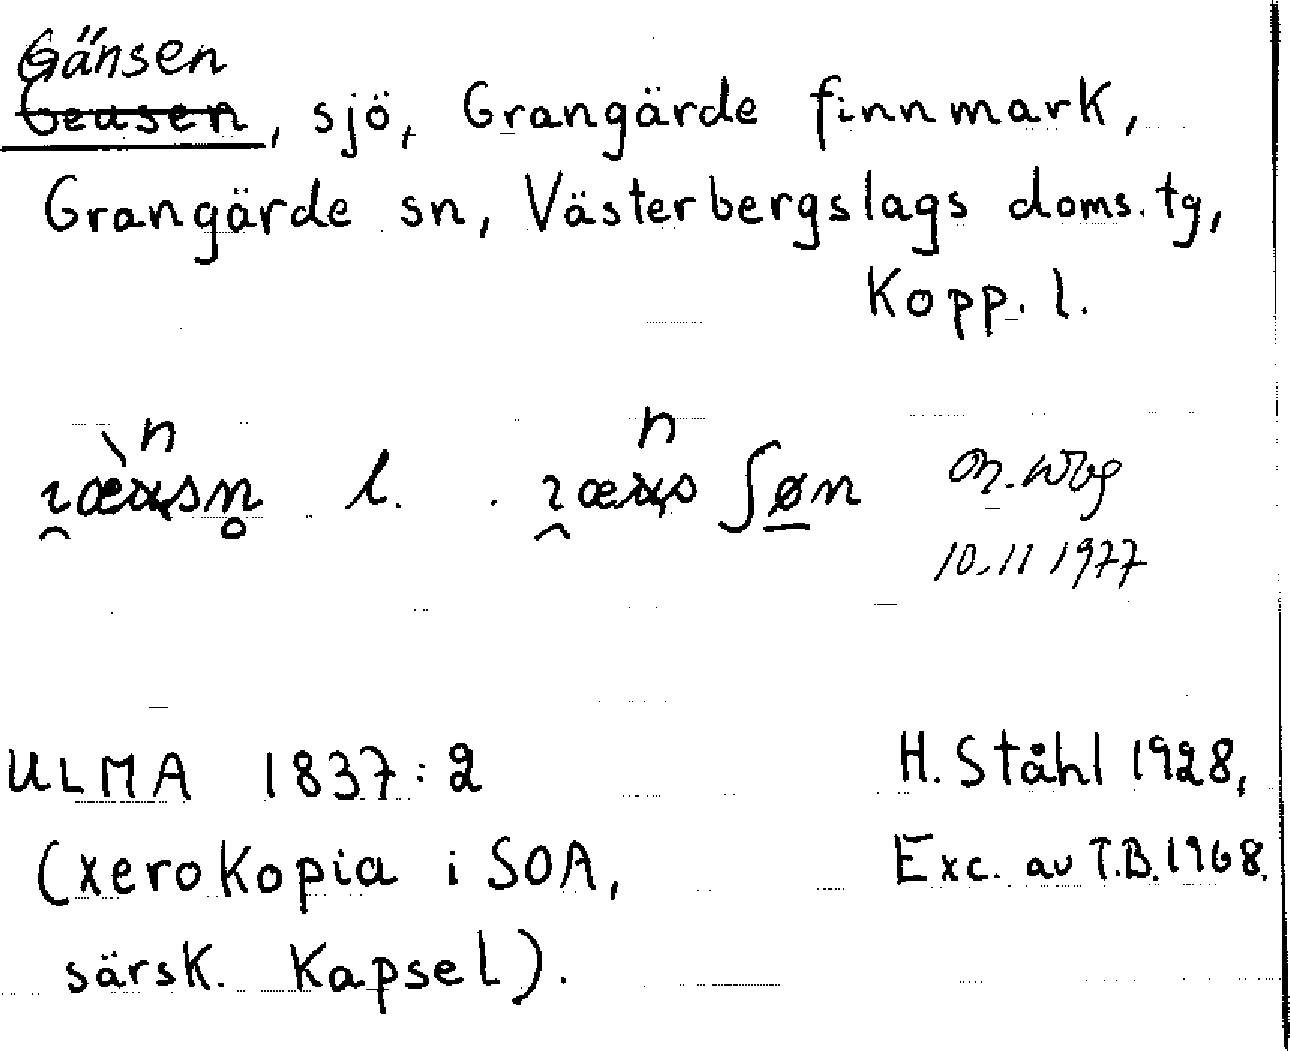 Gänsen
Geusen, sjö, Grangärde finnmark,
Grangärde sn, Västerbergslags doms.tg,
Kopp. l.
n n
l.
10.11 1977
ULMA 1837:2 H. Ståhl 1928,
(xerokopia i SOA, Exc. av T.B. 1968.
särsk. kapsel).